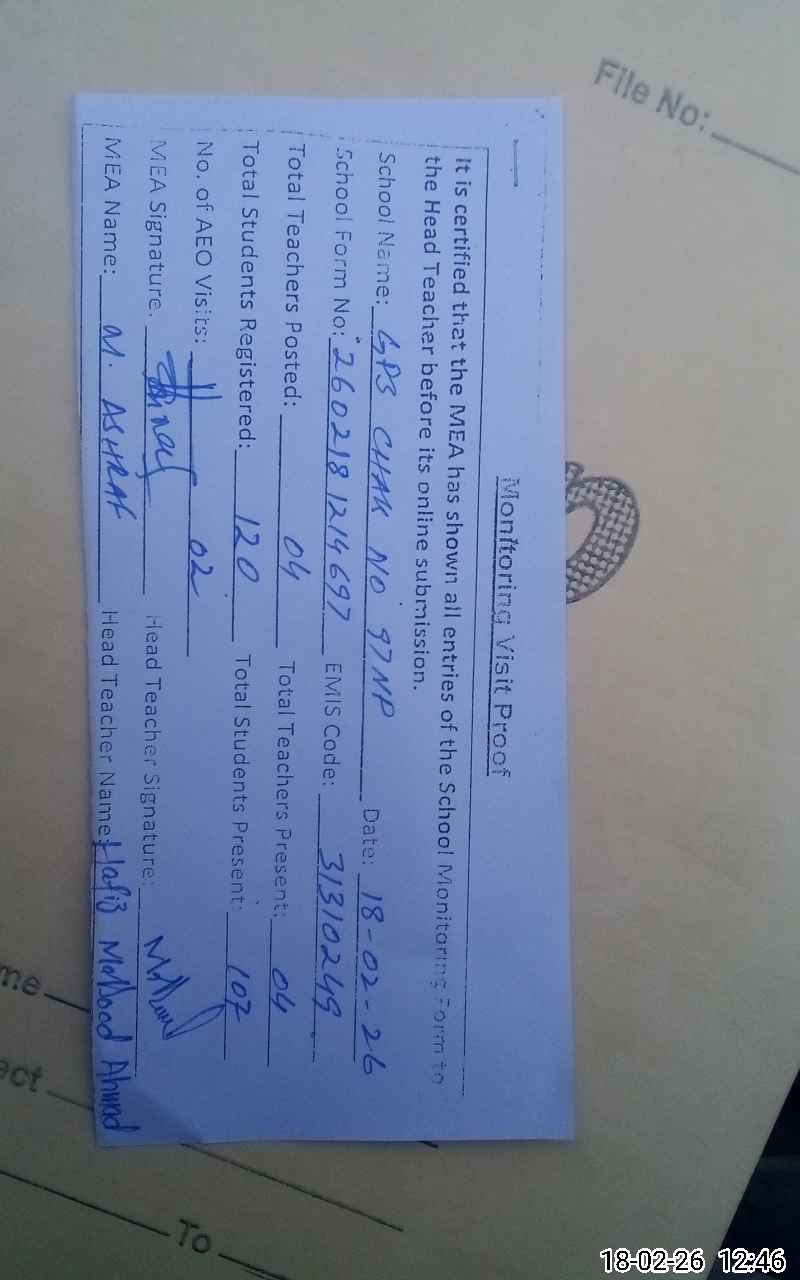 File No:
Monitoring Visit Proof
It is certified that the MEA has shown all entries of the School Monitoring Form to
the Head Teacher before its online submission.
School Name: GPS CHAK NO 97NP Date: 18-02-26
School Form No: 2602181214697 EMIS Code: 31310249
Total Teachers Posted: 04 Total Teachers Present: 04
Total Students Registered: 120 Total Students Present: 107
No. of AEO Visits: 02
MEA Signature. Head Teacher Signature:
MEA Name: M. ASHRAF Head Teacher Name: Hafiz Ahmad
me
ect
To
18-02-26 12:46